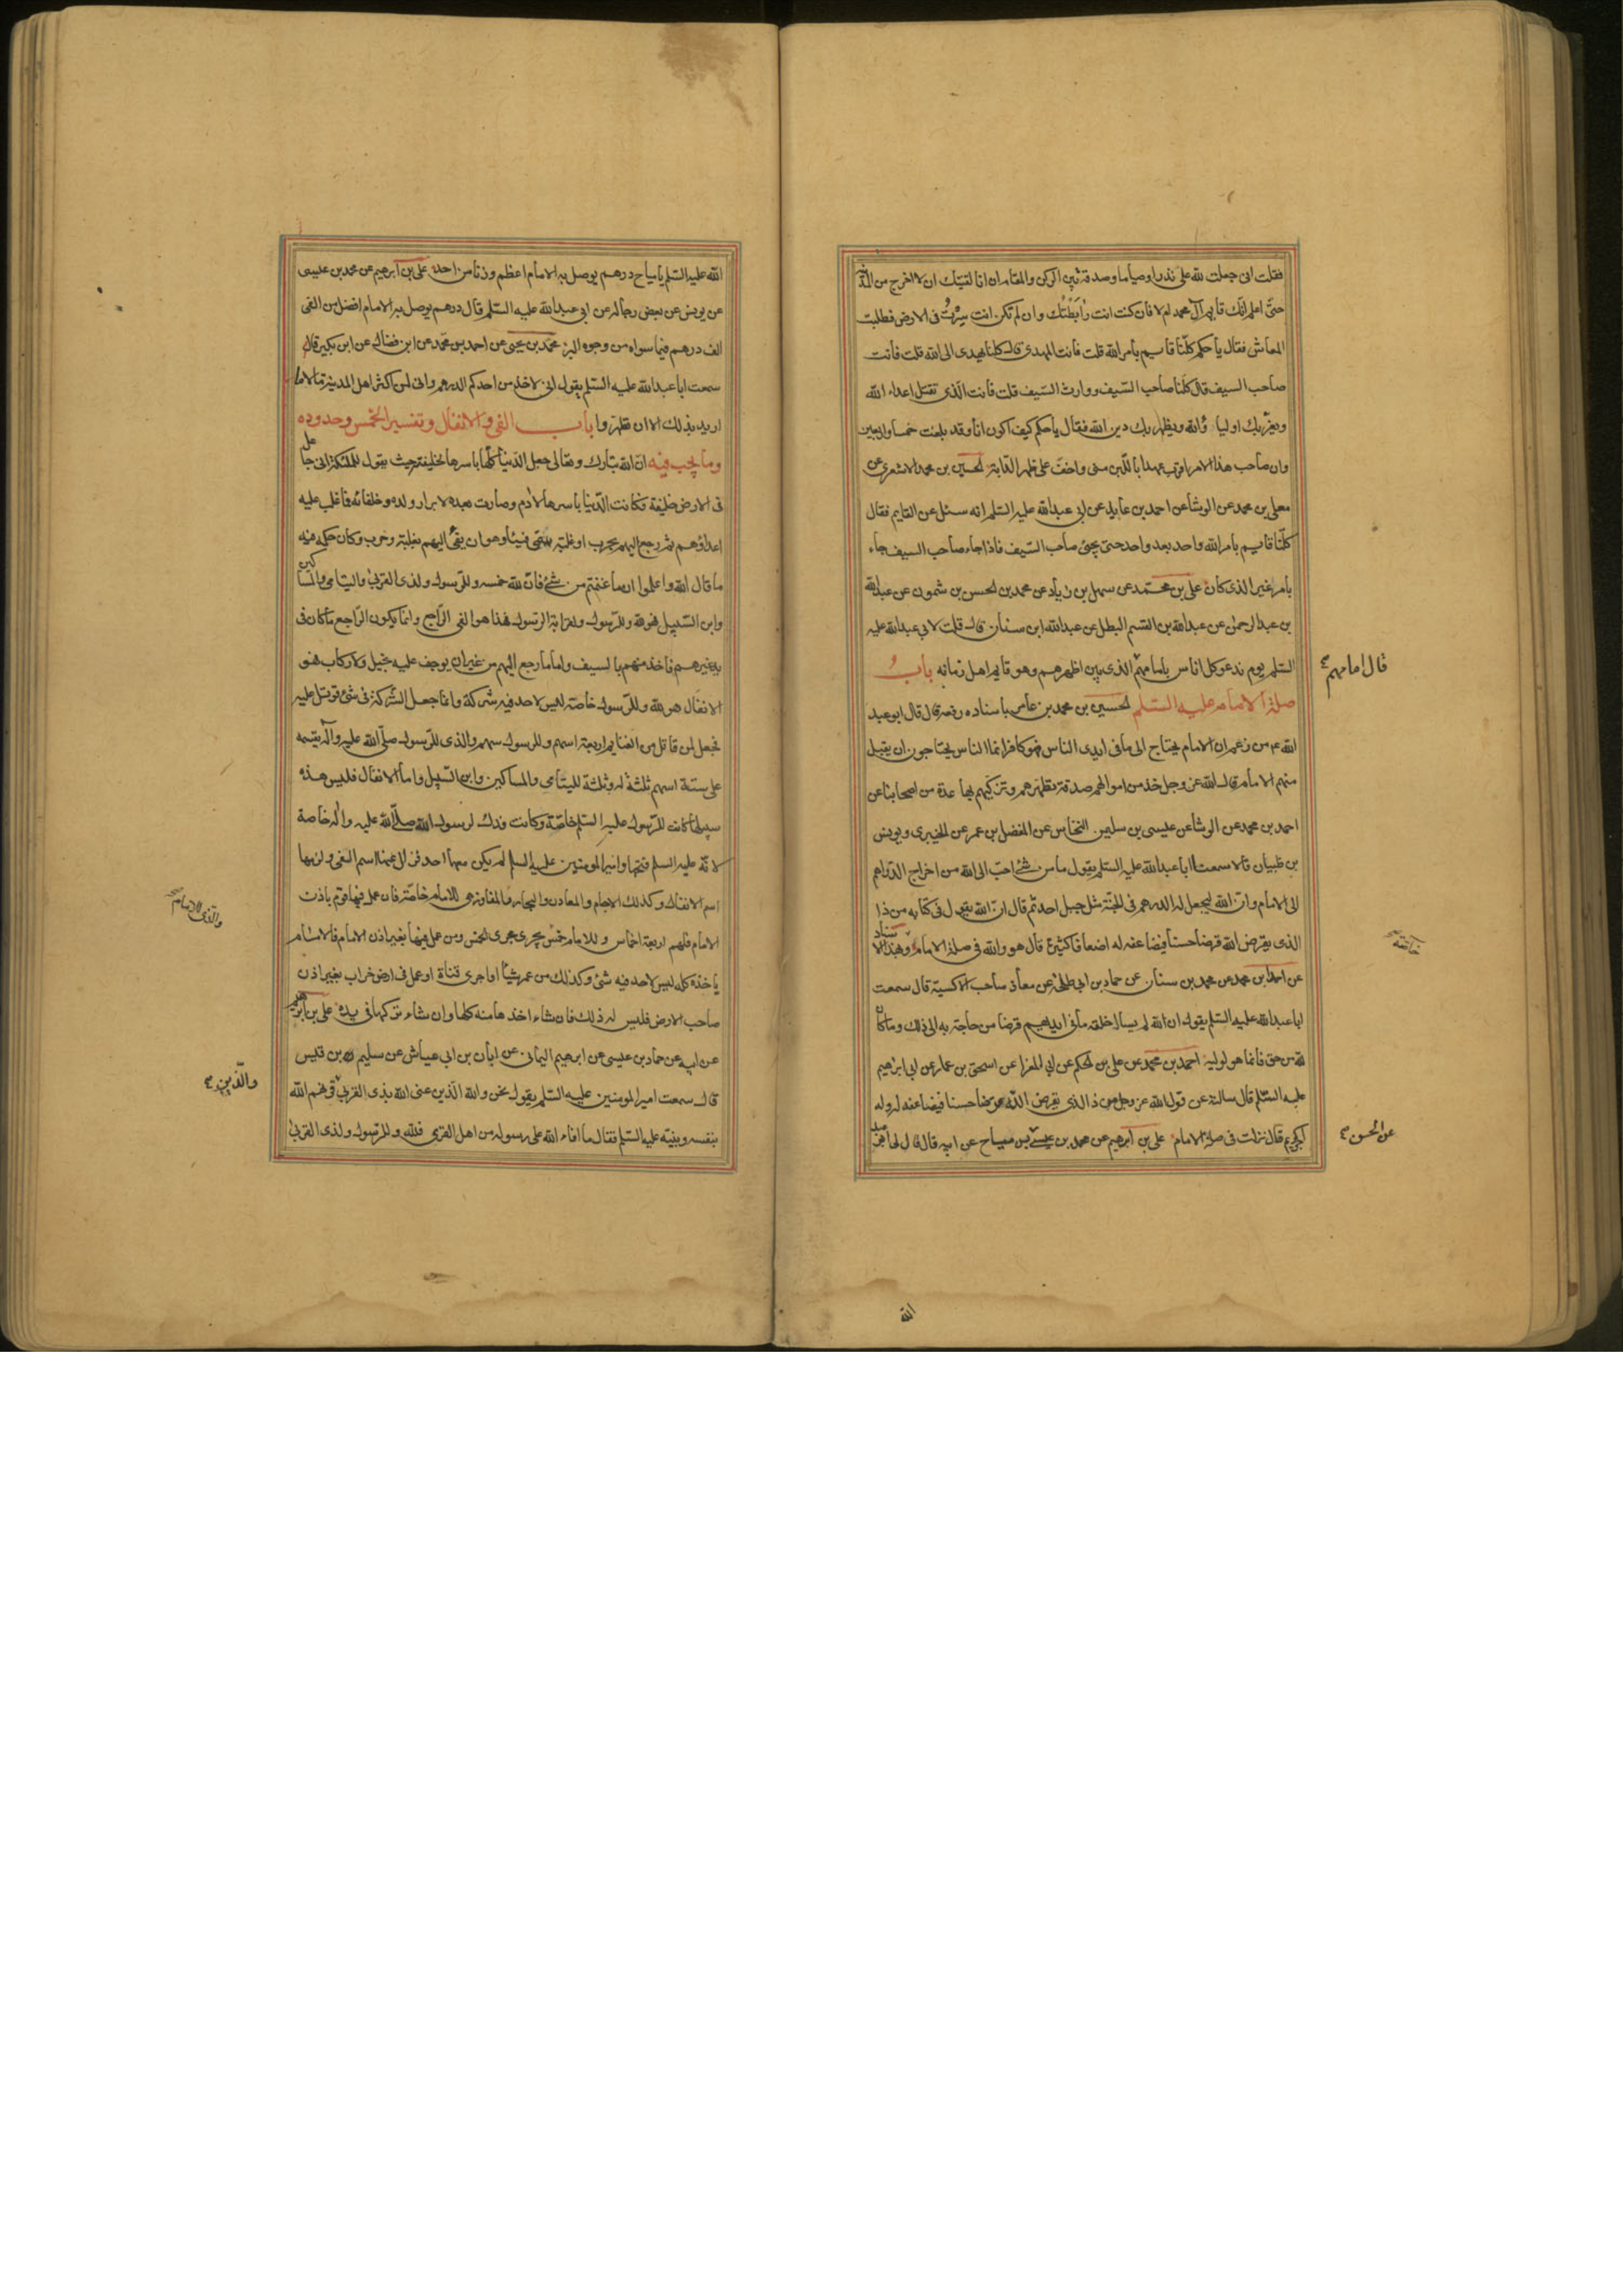 فقلت انى جعلت لله على نذرا وصياما وصدقة بين الركن والمقام ان انا لقيتك ان لا اخرج من المدينة
حتى اعلم انك قايم آل محمد ام لا فان كنت انت رابطتك وان لم تكن انت سرت فى الارض فطلبت
المعاش فقال يا حكم كلنا قايم بامر الله قلت فانت المهدى قال كلنا نهدى الى الله قلت فانت
صاحب السيف قال كلنا صاحب السيف ووارث السيف قلت فانت الذى تقتل اعداء الله
ويعز بك اولياء الله ويظهر بك دين الله فقال يا حكم كيف اكون انا وقد بلغت خمسا واربعين
وان صاحب هذا الامر اقرب عهدا باللبن منى واخف على ظهر الدابة الحسين بن محمد الاشعرى عن
معلى بن محمد عن الوشا عن احمد بن عايذ عن ابى عبد الله عليه السلم انه سئل عن القايم فقال
كلنا قايم بامر الله واحد بعد واحد حتى يجئ صاحب السيف فاذا جاء صاحب السيف جاء
بامر غير الذى كان على بن محمد عن سهل بن زياد عن محمد بن الحسن بن شمون عن عبد الله
بن عبد الرحمن عن عبد الله بن القسم البطل عن عبد الله ابن سنان قال قلت لابى عبد الله عليه
السلم يوم ندعو كل اناس بامامهم الذى بين اظهرهم وهو قايم اهل زمانه باب
قال امامهم
صلة الامام عليه السلم الحسين بن محمد بن عامر باسناده رفعه قال قال ابو عبد
الله ع من زعم ان الامام يحتاج الى ما فى ايدى الناس فهو كافر انما الناس يحتاجون ان يقبل
منهم الامام قال الله عز وجل خذ من اموالهم صدقة تطهرهم وتزكيهم بها عدة من اصحابنا عن
احمد بن محمد عن الوشا عن عيسى بن سليمن النخاس عن المفضل بن عمر عن الخيبرى ويونس
بن ظبيان قالا سمعنا ابا عبد الله عليه السلم يقول ما من شئ احب الى الله من اخراج الدراهم
الى الامام وان الله ليجعل له الدرهم فى الجنة مثل جبل احد ثم قال ان الله يقول فى كتابه من ذا
الذى يقرض الله قرضا حسنا فيضاعفه له اضعافا كثيرة قال هو والله فى صلة الامام وبهذا الاسناد
خاصة
عن احمد بن محمد عن محمد بن سنان عن حماد بن ابى طلحة عن معاذ صاحب الاكسية قال سمعت
ابا عبد الله عليه السلم يقول ان الله لم يسال خلقه ما فى ايديهم قرضا من حاجة به الى ذلك وما كان
لله من حق فانما هو لوليه احمد بن محمد عن على بن الحكم عن ابى المغرا عن اسحق بن عمار عن ابى ابراهيم
عليه السلم قال سالته عن قول الله عز وجل من ذا الذى يقرض الله قرضا حسنا فيضاعفه له وله
اجر كريم قال نزلت فى صلة الامام على بن ابرهيم عن محمد بن عيسى عن مياح عن ابيه قال قال لى ابو عبد
عن الحسن
الله
الله عليه السلم يا مياح درهم يوصل به الامام اعظم وزنا من احد على بن ابرهيم عن محمد بن عيسى
عن يونس عن بعض رجاله عن ابى عبد الله عليه السلم قال درهم يوصل به الامام افضل من الفى
الف درهم فيما سواه من وجوه البر محمد بن يحيى عن احمد بن محمد عن ابن فضال عن ابن بكير قال
سمعت ابا عبد الله عليه السلم يقول انى لاخذ من احدكم الدرهم وانى لمن اكثر اهل المدينة مالا ما
اريد بذلك الا ان تطهروا باب الفئ والانفال وتفسير الخمس وحدوده
وما يجب فيه ان الله تبارك وتعالى جعل الدنيا كلها باسرها لخليفته حيث يقول للملئكة انى جاعل
فى الارض خليفة فكانت الدنيا باسرها لادم وصارت بعده لابرار ولده وخلفائه فما غلب عليه
اعداؤهم ثم رجع اليهم بحرب او غلبة سمى فيئا وهو ان يفئ اليهم بغلبة وحرب وكان حكمه فيه
ما قال الله واعلموا ان ما غنمتم من شئ فان لله خمسه وللرسول ولذى القربى واليتامى والمساكين
وابن السبيل فهو لله وللرسول ولقرابة الرسول فهذا هو الفئ الراجع وانما يكون الراجع ما كان فى
يد غيرهم فاخذ منهم بالسيف واما ما رجع اليهم من غير ان يوجف عليه بخيل ولا ركاب فهو
الانفال هو لله وللرسول خاصة ليس لاحد فيه شركة وانما جعل الشركة فى شئ قوتل عليه
فجعل لمن قاتل من الغنايم اربعة اسهم وللرسول سهم والذى للرسول صلى الله عليه وآله يقسمه
على ستة اسهم ثلثة له وثلثة لليتامى والمساكين وابن السبيل واما الانفال فليس هذه
سبيلها كانت للرسول عليه السلم خاصة وكانت فدك لرسول الله صلى الله عليه واله خاصة
لانه عليه السلم فتحها وامير المومنين عليه السلم لم يكن معهما احد فزال عنها اسم الفئ ولزمها
اسم الانفال وكذلك الاجام والمعادن والبحار والمفاوز هى للامام خاصة فان عمل فيها قوم باذن
والذى للامام
الامام فلهم اربعة اخماس وللامام خمس يجرى مجرى الخمس ومن عمل فيها بغير اذن الامام فالامام
ياخذه كله ليس لاحد فيه شئ وكذلك من عمر شيئا او اجرى قناة او عمل فى ارض خراب بغير اذن
صاحب الارض فليس له ذلك فان شاء اخذها منه كلها وان شاء تركها فى يده على بن ابرهيم
عن ابيه عن حماد بن عيسى عن ابرهيم اليمانى عن ابان بن ابى عياش عن سليم بن قيس
قال سمعت امير المومنين عليه السلم يقول نحن والله الذين عنى الله بذى القربى قرنهم الله
والذين
بنفسه ونبيه عليه السلم فقال ما افاء الله على رسوله من اهل القرى فلله وللرسول ولذى القربى